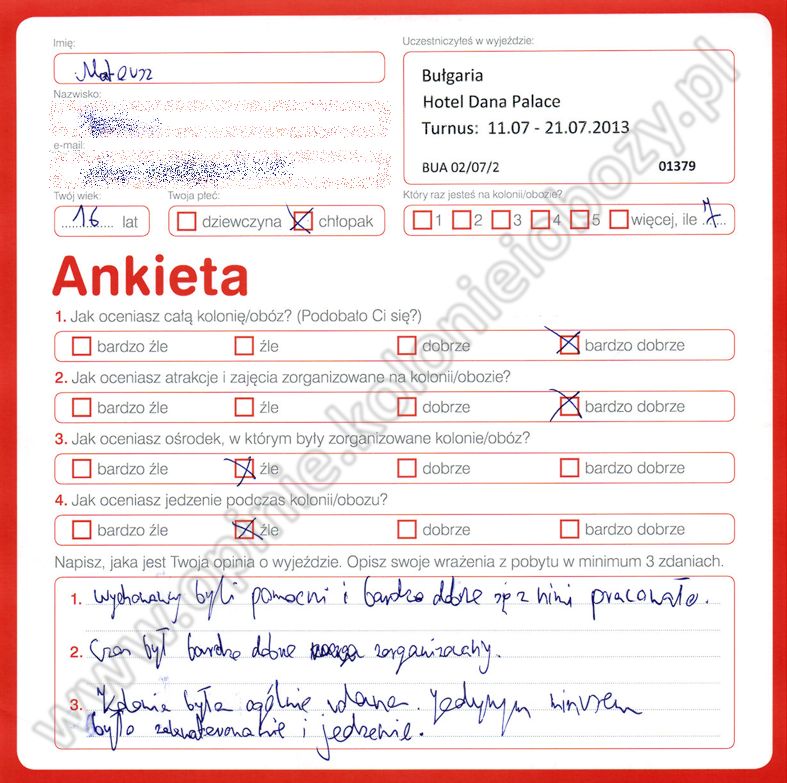 Imię:
Mateusz
Uczestniczyłeś w wyjeździe:
Bułgaria
Hotel Dana Palace
Turnus: 11.07 - 21.07.2013
BUA 02/07/2
01379
Nazwisko:
e-mail:
Twój wiek:
16 lat
Twoja płeć:
dziewczyna chłopak
Który raz jesteś na kolonii/obozie?
1 2 3 4 5 więcej, ile 7
Ankieta
1. Jak oceniasz całą kolonię/obóz? (Podobało Ci się?)
bardzo źle źle dobrze bardzo dobrze
2. Jak oceniasz atrakcje i zajęcia zorganizowane na kolonii/obozie?
bardzo źle źle dobrze bardzo dobrze
3. Jak oceniasz ośrodek, w którym były zorganizowane kolonie/obóz?
bardzo źle źle dobrze bardzo dobrze
4. Jak oceniasz jedzenie podczas kolonii/obozu?
bardzo źle źle dobrze bardzo dobrze
Napisz, jaka jest Twoja opinia o wyjeździe. Opisz swoje wrażenia z pobytu w minimum 3 zdaniach.
1. Wychowawcy byli pomocni i bardzo dobrze się z nimi pracowało.
2. Czas był bardzo dobrze zorganizowany.
3. Kolonia była ogólnie udana. Jedynym minusem
było zakwaterowanie i jedzenie.
www.opinie.kolonieiobozy.pl